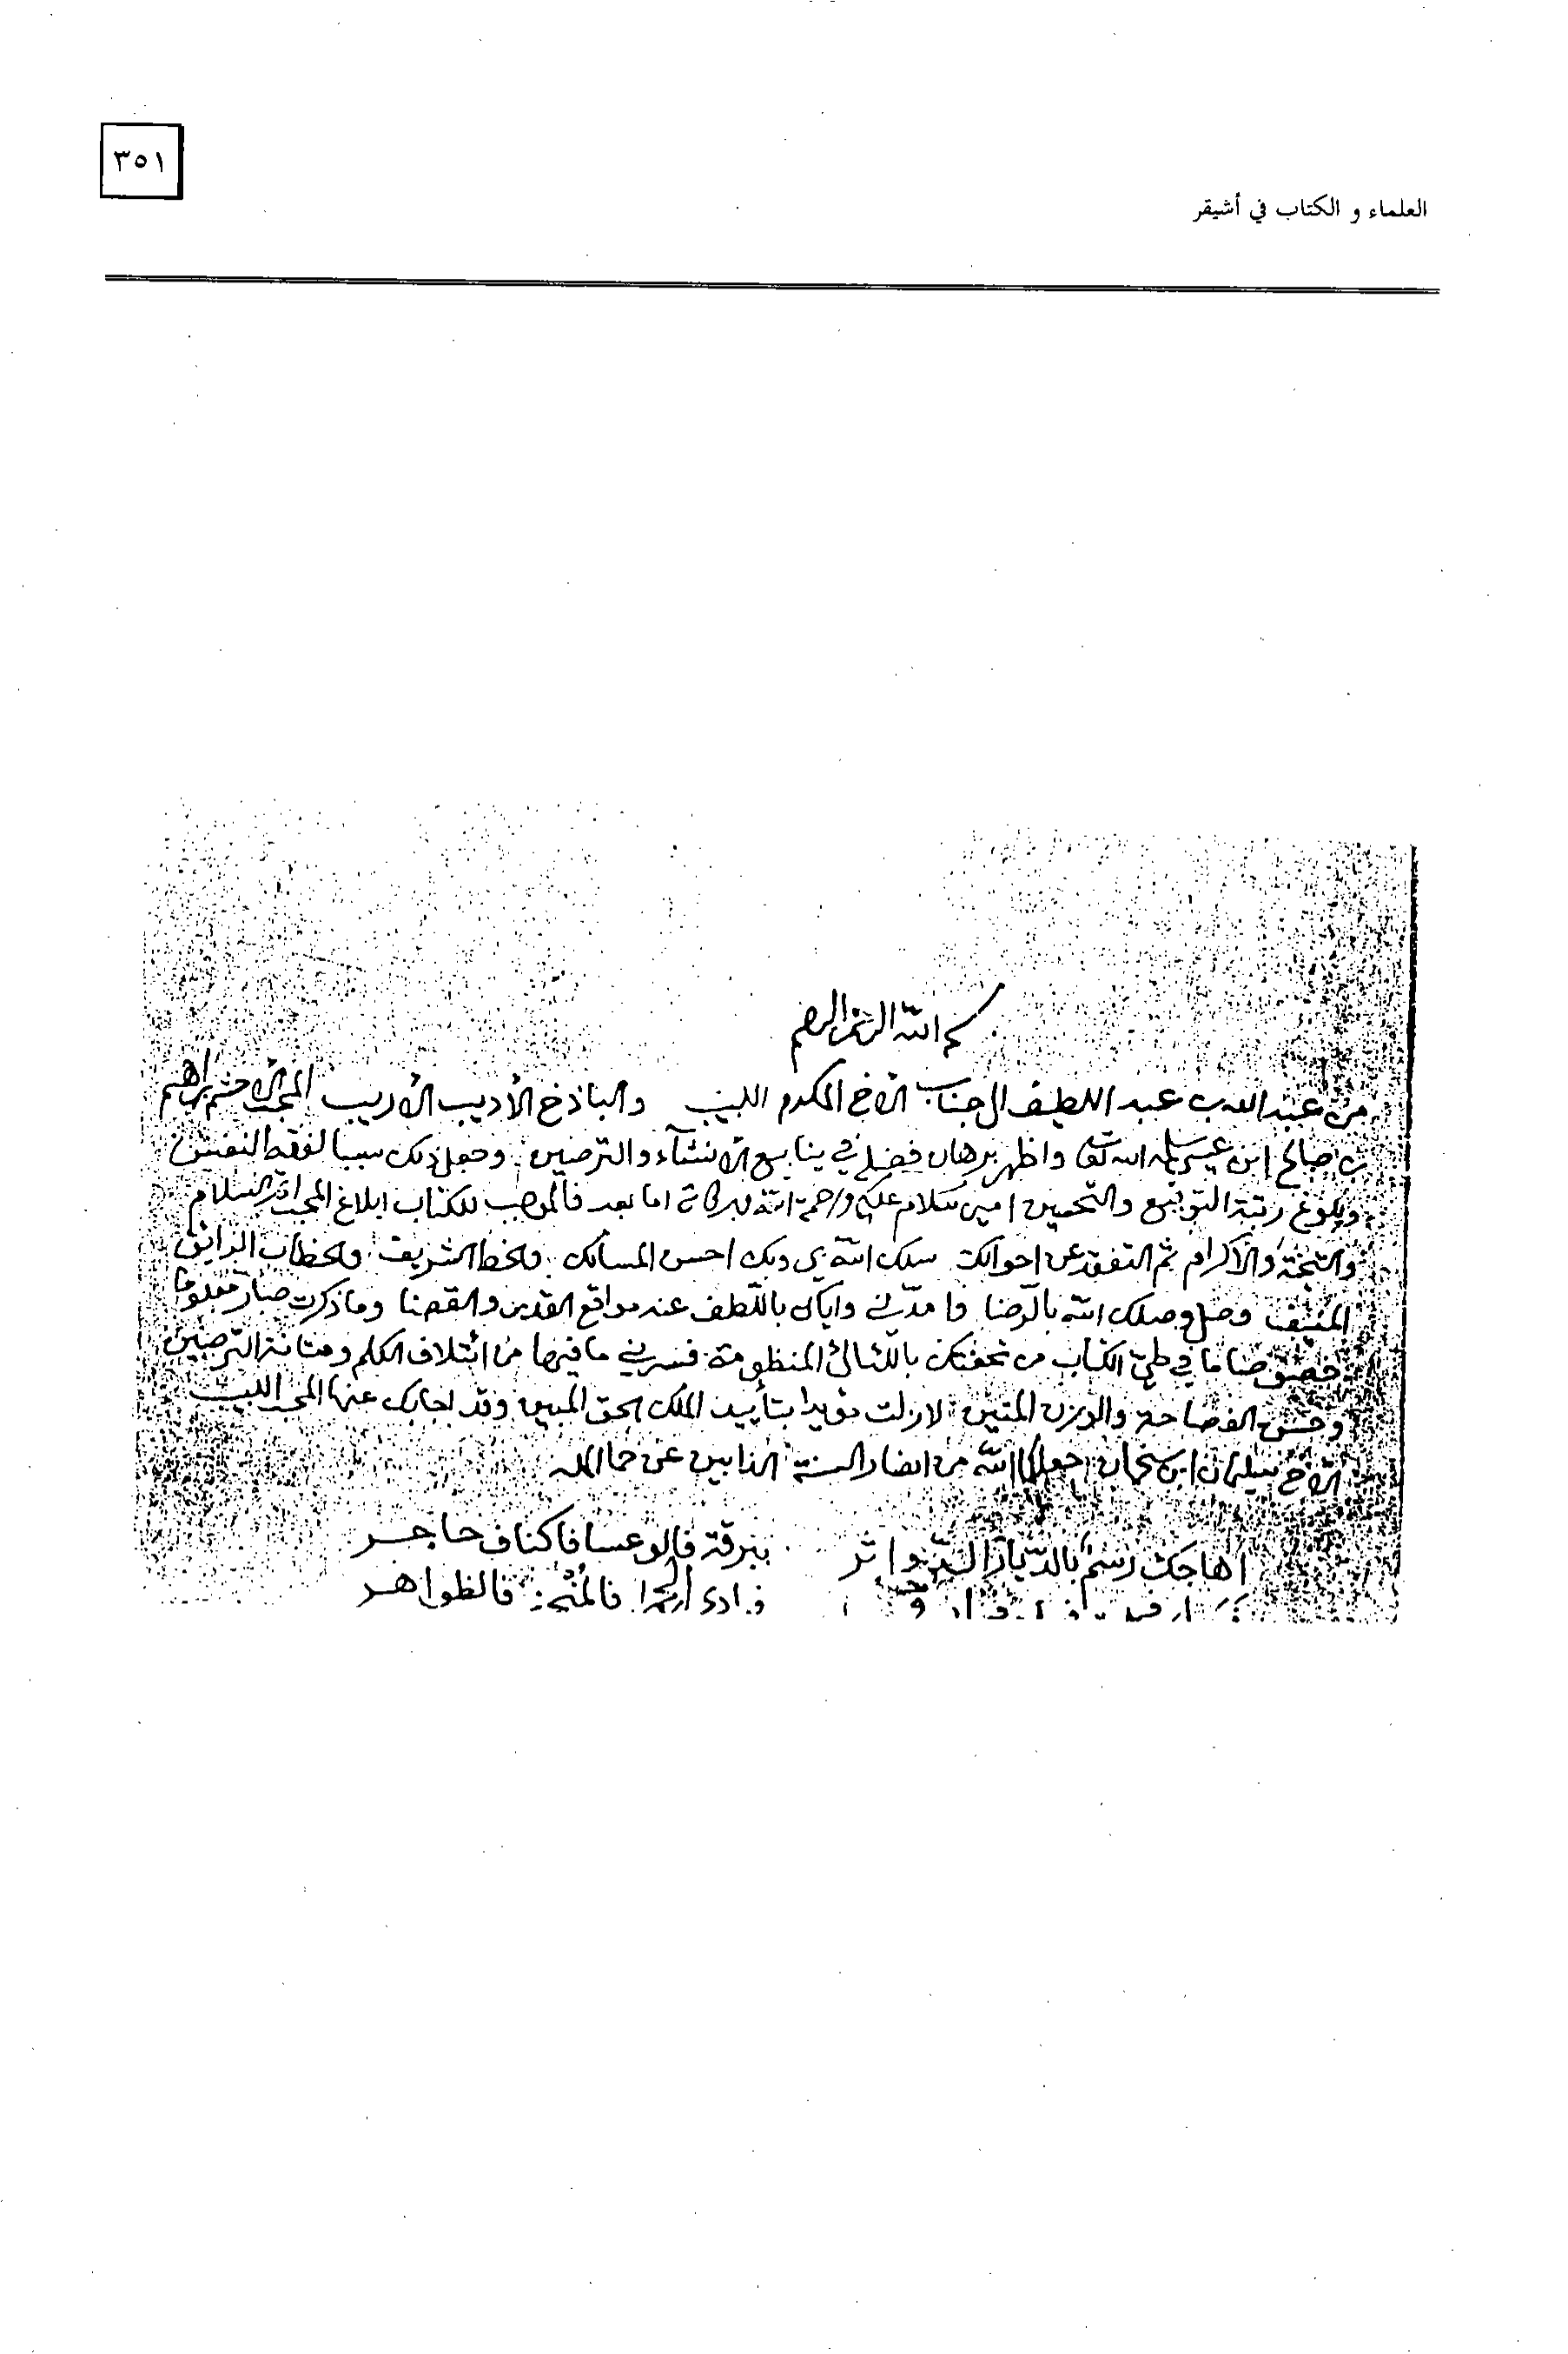 ٣٥١
العلماء و الكتاب في أشيقر
بسم الله الرحمن الرحيم
من عبد الله بن عبد اللطيف الى جناب الاخ المكرم اللبيب والباذخ الأديب الأريب المحب الاحشم ابراهيم
بن صالح ابن عيسى سلمه الله تعالى واظهر برهان فضله في ينابيع الانشآء والترصين وجعل ذلك سببا لفقه النفس
وبلوغ رتبة التوقيع والتحسين امين سلام عليكم ورحمة الله وبركاته اما بعد فالموجب للكتاب ابلاغ المحب السلام
والتحية والاكرام ثم التفقد عن احوالك سلك الله بي وبك احسن المسالك والخط الشريف والخطاب الرايق
المنيف وصل وصلك الله بالرضا وامدني واياك باللطف عند مواقع القدر والقضا وما ذكرت صار معلوما
ما في طي الكتاب من تحفتك باللئالئ المنظومة فسرني ما فيها من ائتلاف الكلم ومتانة الترصين
وحسن الفصاحة والوزن المتين لازلت مؤيدا بتأييد الملك الحق المبين وقد اجابك عنها المحب اللبيب
الاخ سليمان ابن سحمان جعله الله من انصار السنة الذابين عن حما المله
اهاجك رسم بالديار الدواثر ببرقة فالوعسا فاكناف حاجر
فوادى فالظواهر